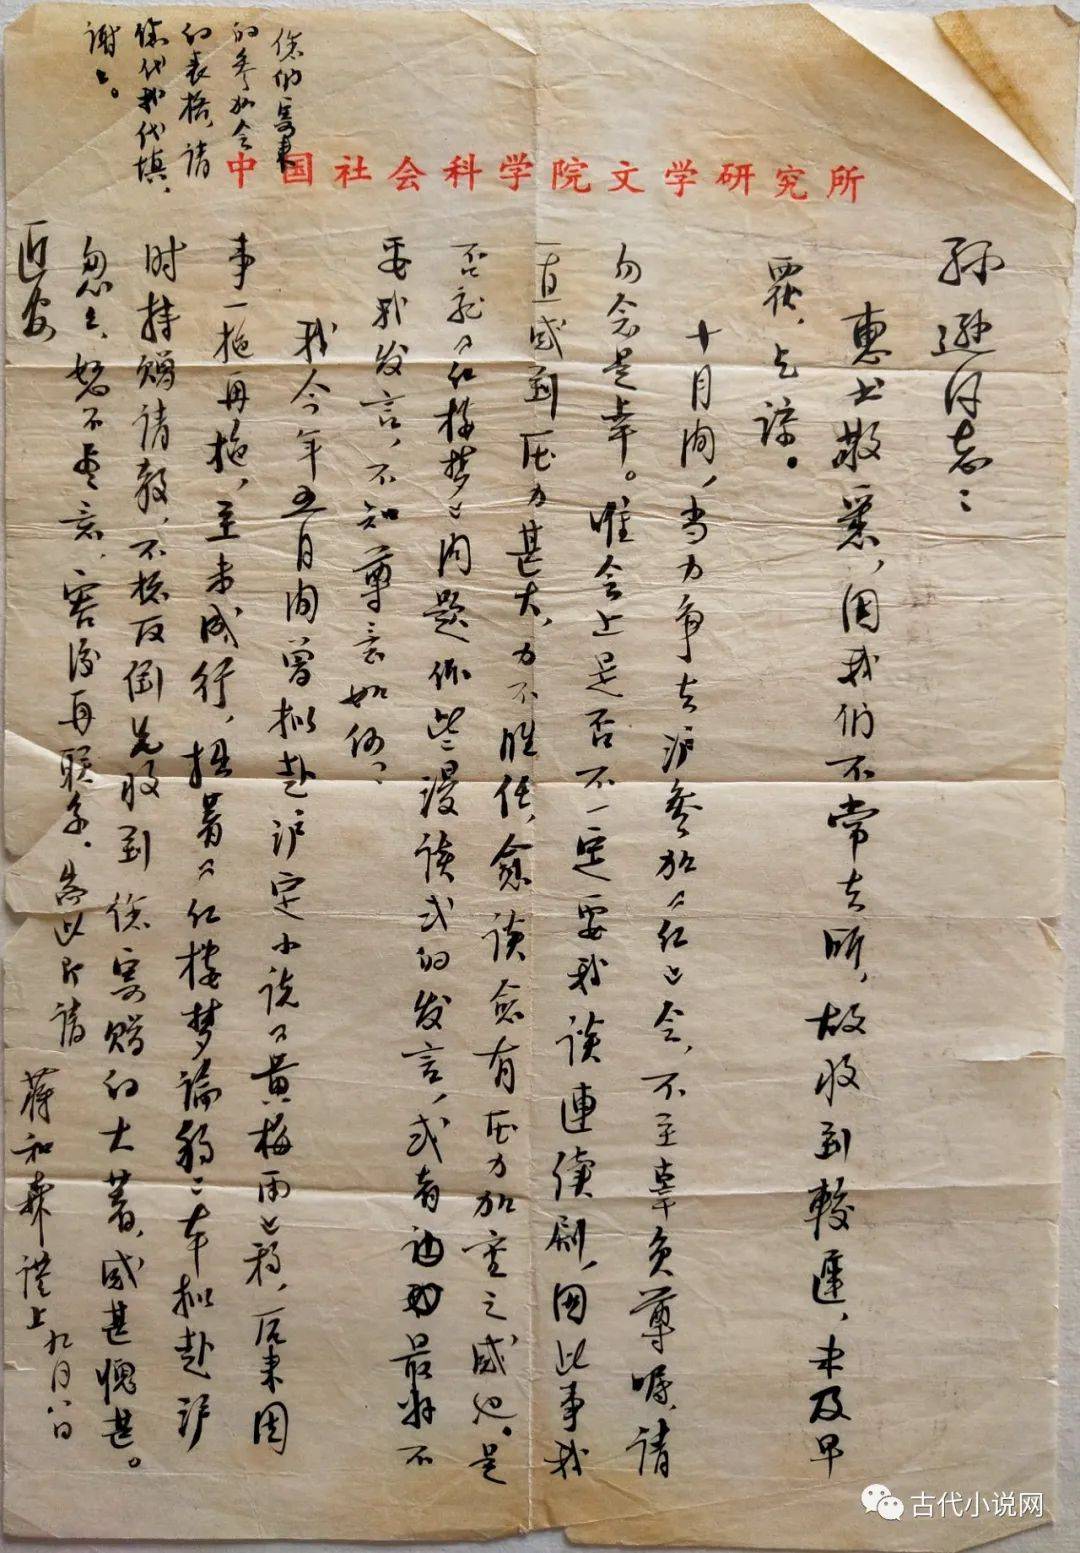 中国社会科学院文学研究所
孙逊同志：
惠书敬悉，因我们不常去所，故收到较迟，未及早
覆，乞谅。
十月间，当力争去沪参加《红》会，不至辜负尊嘱，请
勿念是幸。唯会上是否不一定要我谈连续剧，因此事我
一直感到压力甚大，力不胜任，愈谈愈有压力加重之感也。是
否就《红楼梦》问题作些漫谈式的发言，或者最好不
要我发言，不知尊意如何？
我今年五月间曾拟赴沪定小说《黄梅雨》稿，后来因
事一拖再拖，至未成行，拙著《红楼梦论稿》本拟赴沪
时持赠请教，不想反倒先收到您寄赠的大著，感甚愧甚。
匆匆，恕不尽意，容后再联系。即请
近安
蒋和森谨上 九月八日
您们寄来
的参加会
的表格，请
您代我代填，
谢谢。
古代小说网